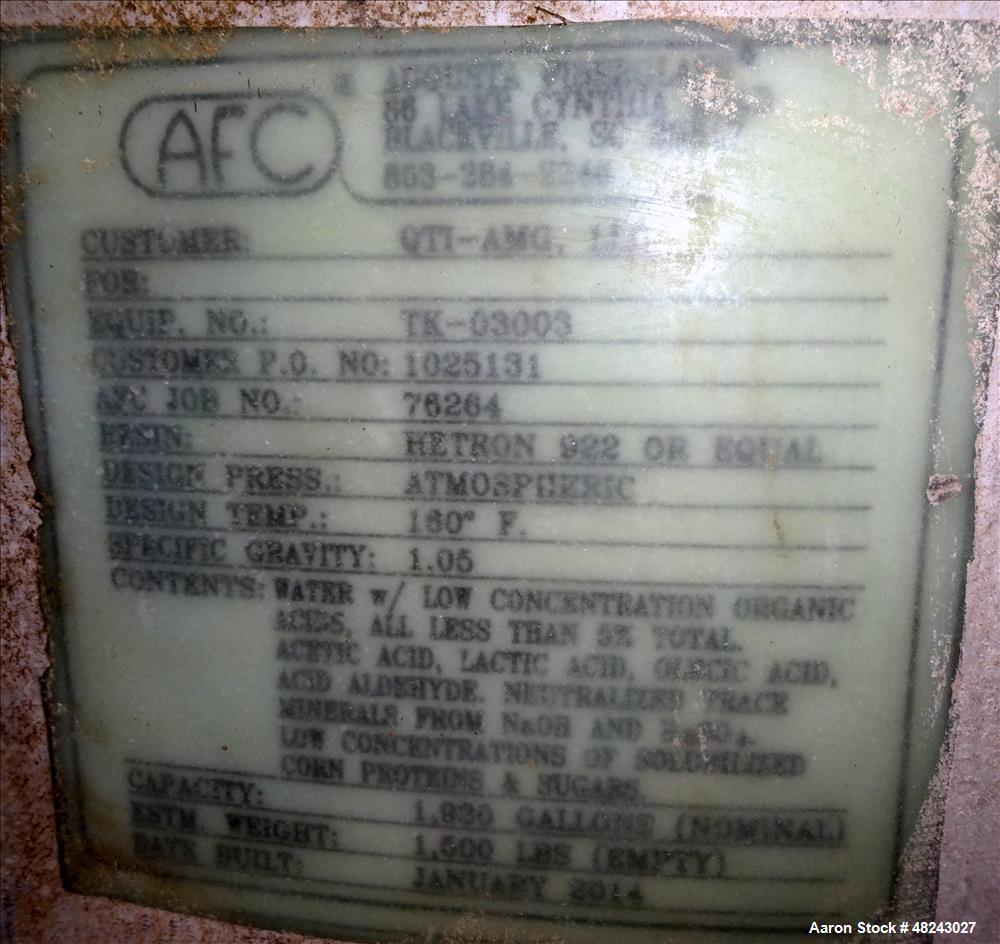 AFC
AUGUSTA FIBERGLASS
LAKE CYNTHIA
BLACKVILLE,
CUSTOMER: QTI-AMG,
FOR:
EQUIP. NO.: TK-03003
CUSTOMER P.O. NO: 1025131
AFC JOB NO.: 76264
RESIN: HETRON 922 OR EQUAL
DESIGN PRESS.: ATMOSPHERIC
DESIGN TEMP.: 160° F.
SPECIFIC GRAVITY: 1.05
CONTENTS: WATER w/ LOW CONCENTRATION ORGANIC
ACIDS, ALL LESS THAN 5% TOTAL.
ACETIC ACID, LACTIC ACID, ACID,
ACID ALDEHYDE. NEUTRALIZED TRACE
MINERALS FROM NaOH AND
LOW CONCENTRATIONS OF SOLUBILIZED
CORN PROTEINS & SUGARS.
CAPACITY: GALLONS (NOMINAL)
ESTM. WEIGHT: LBS (EMPTY)
DATE BUILT: JANUARY 2014
Aaron Stock # 48243027